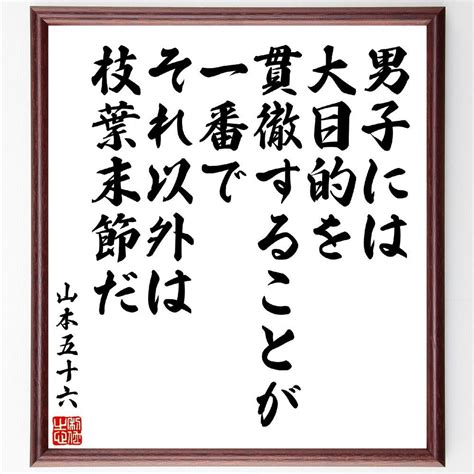 男子には
大目的を
貫徹することが
一番で
それ以外は
枝葉末節だ
山本五十六